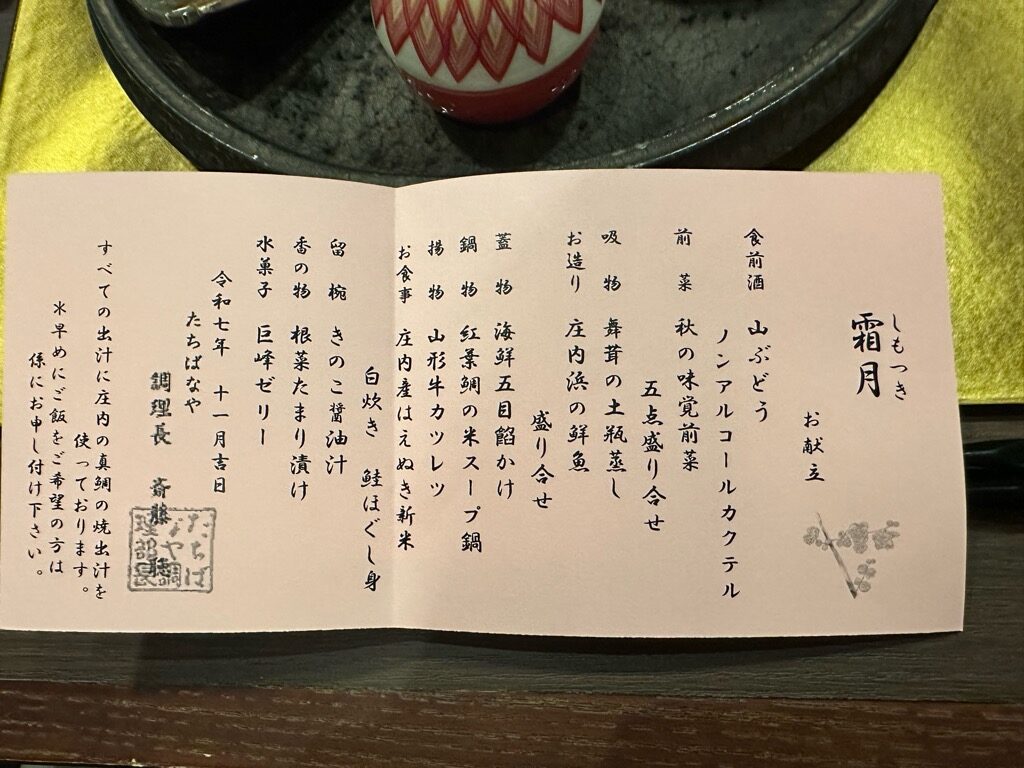 しもつき
霜月
お献立
食前酒 山ぶどう
ノンアルコールカクテル
前菜 秋の味覚前菜
五点盛り合せ
吸物 舞茸の土瓶蒸し
お造り 庄内浜の鮮魚
盛り合せ
蓋物 海鮮五目餡かけ
鍋物 紅葉鯛の米スープ鍋
揚物 山形牛カツレツ
お食事 庄内産はえぬき新米
白炊き 鮭ほぐし身
留椀 きのこ醤油汁
香の物 根菜たまり漬け
水菓子 巨峰ゼリー
令和七年 十一月吉日
たちばなや
調理長 斎藤
たちば
なや調
理部長
すべての出汁に庄内の真鯛の焼出汁を
使っております。
※早めにご飯をご希望の方は
係にお申し付け下さい。